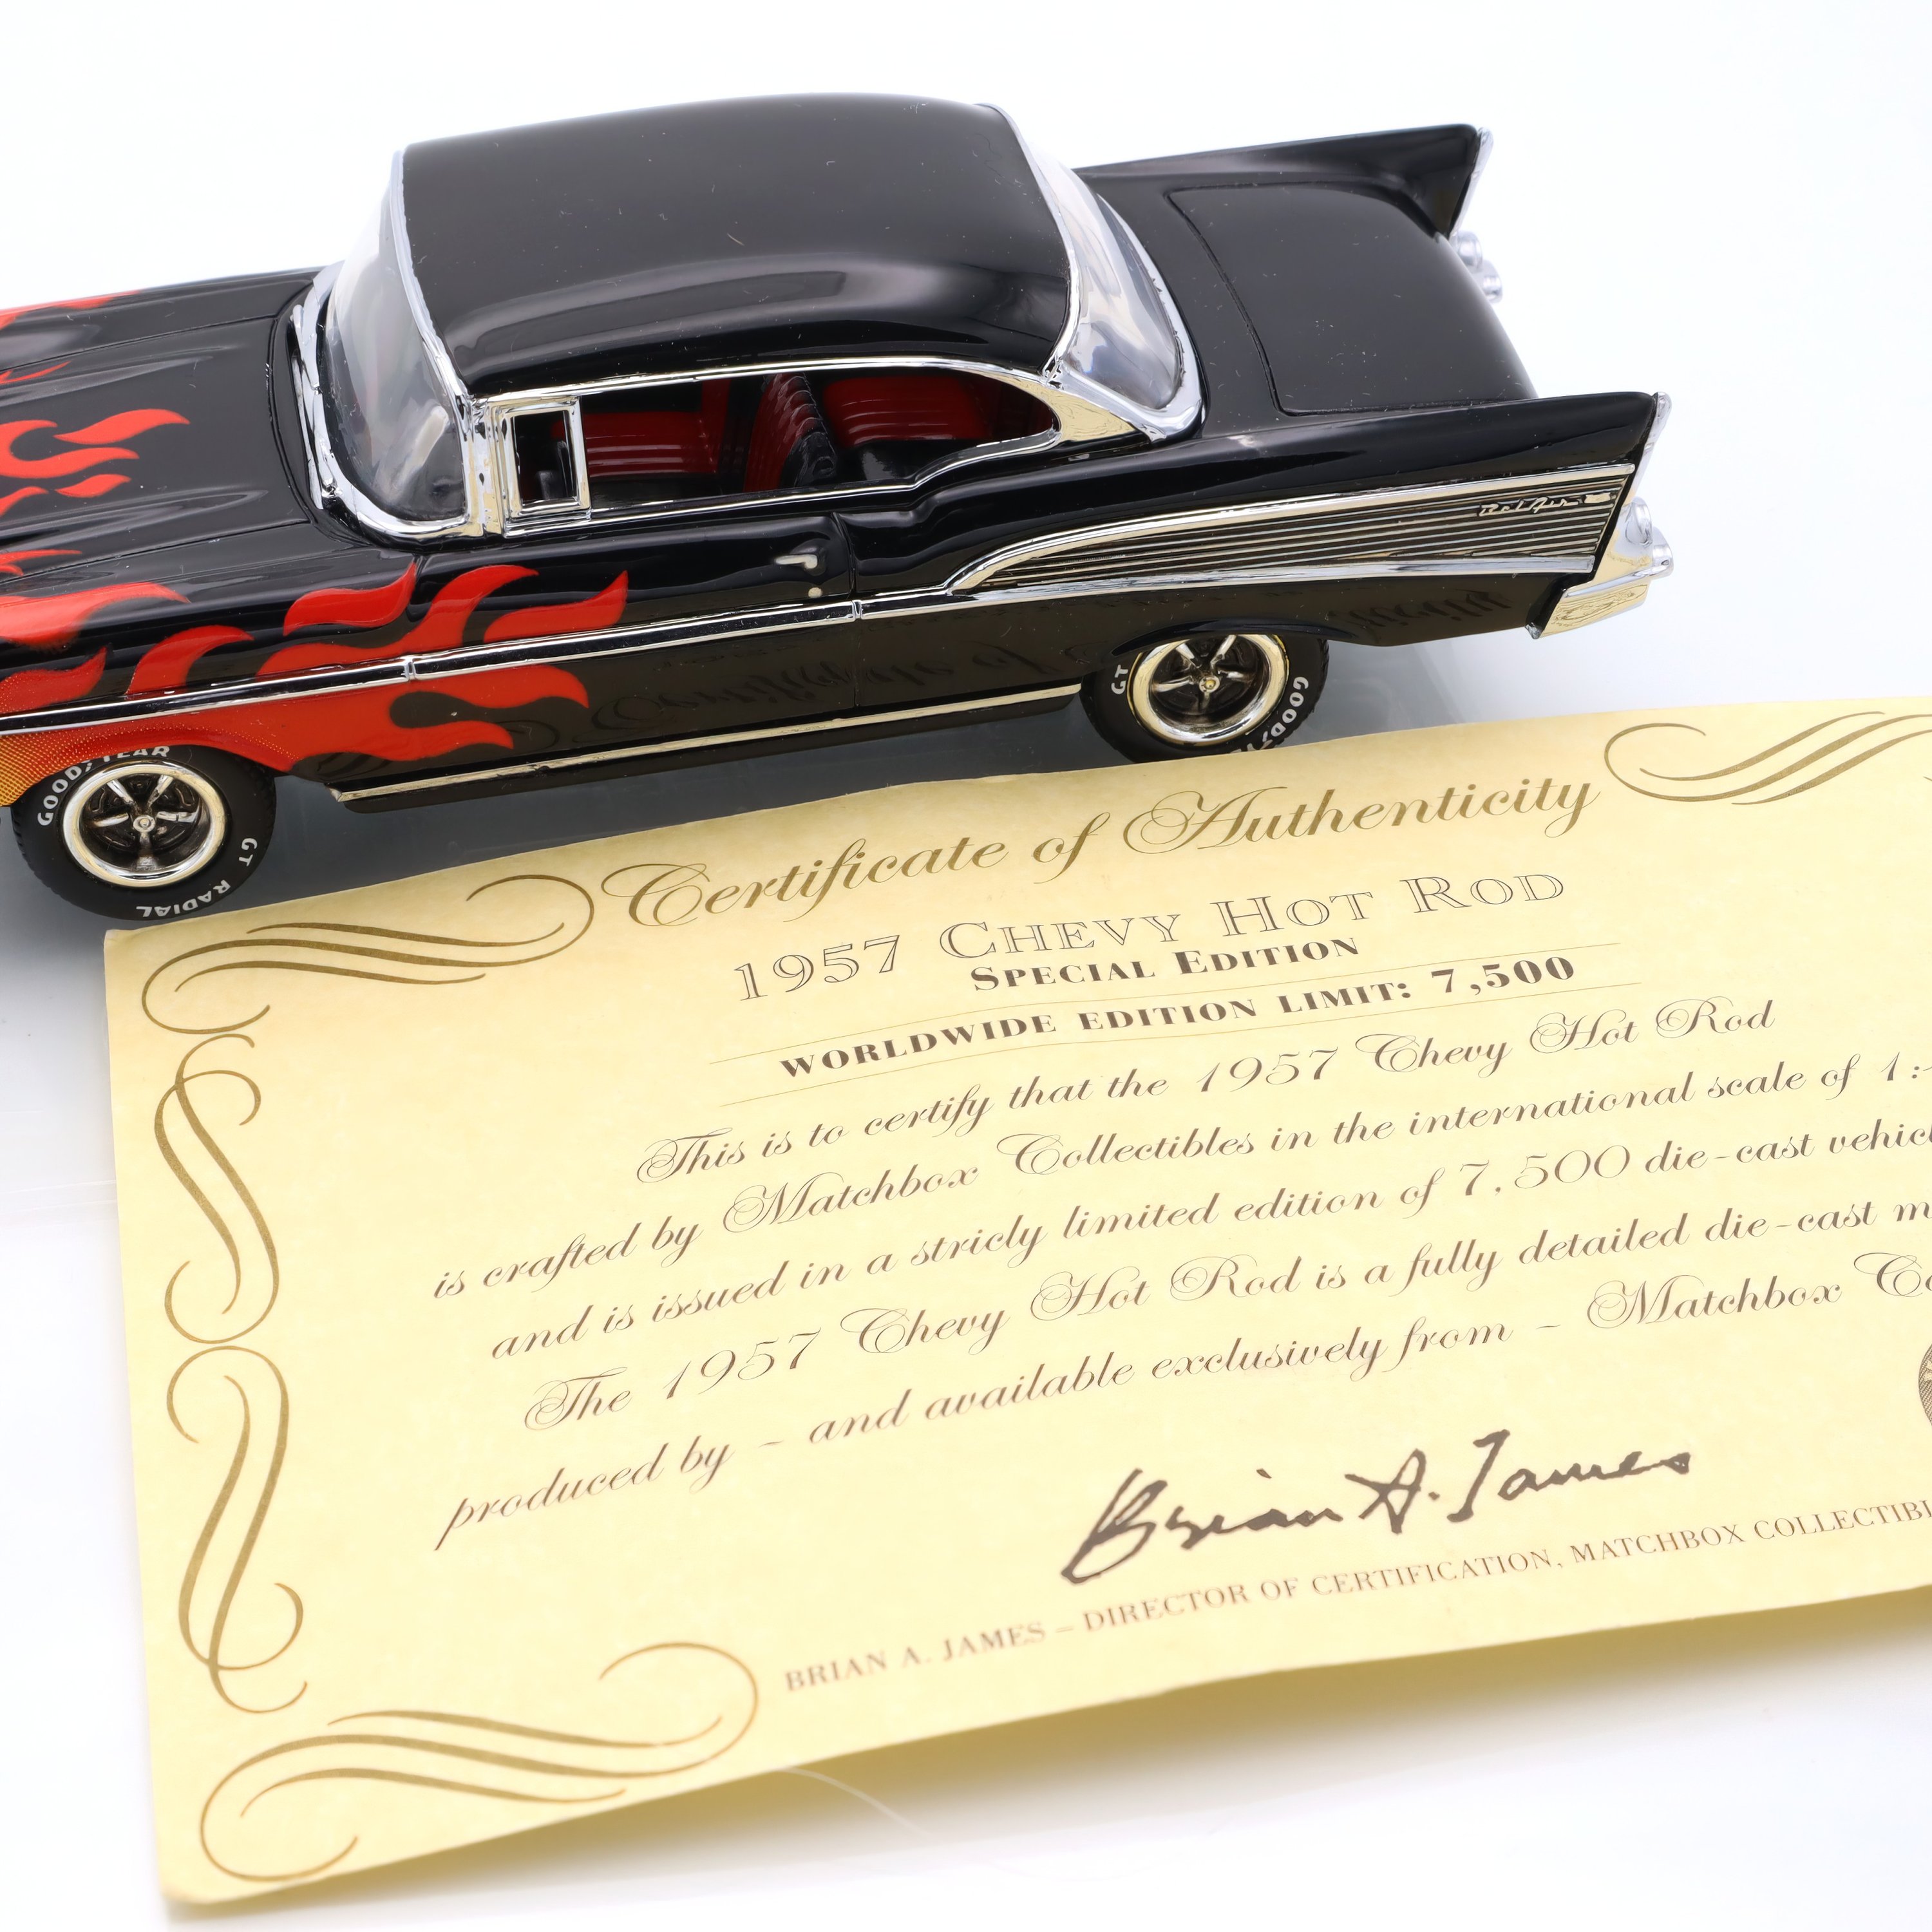 Bel Air
GOODYEAR
GT RADIAL
GT
Certificate of Authenticity
1957 CHEVY HOT ROD
SPECIAL EDITION
WORLDWIDE EDITION LIMIT: 7,500
This is to certify that the 1957 Chevy Hot Rod
is crafted by Matchbox Collectibles in the international scale of 1:
and is issued in a stricly limited edition of 7,500 die-cast
The 1957 Chevy Hot Rod is a fully detailed die-cast
produced by - and available exclusively from - Matchbox
Brian A. James
BRIAN A. JAMES – DIRECTOR OF CERTIFICATION, MATCHBOX